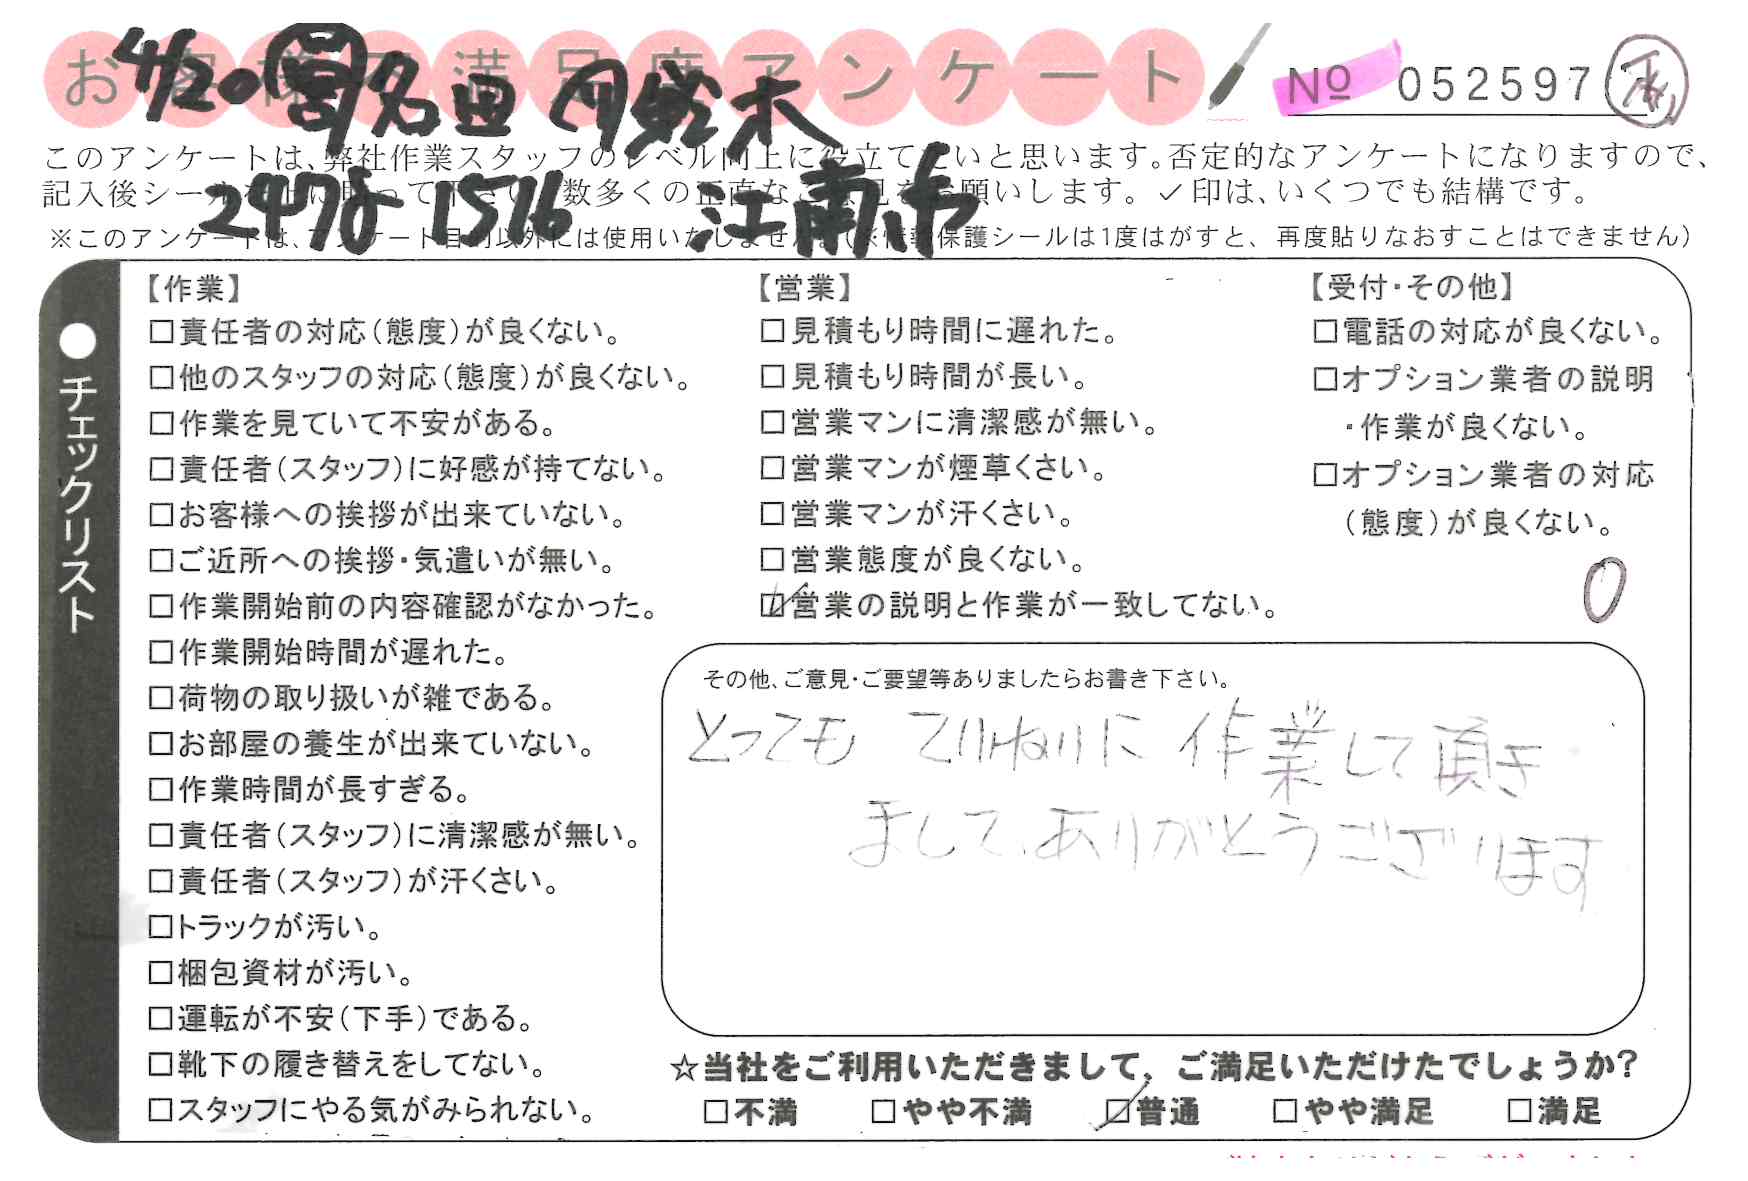 お客様不満足度アンケート
№ 052597
4/20 営 名亜 円 鈴木
2476-1516 江南市
このアンケートは、弊社作業スタッフのレベル向上に役立てたいと思います。否定的なアンケートになりますので、
記入後シールを上に貼って下さい。数多くの正直なご意見をお願いします。✓印は、いくつでも結構です。
※このアンケートは、アンケート目的以外には使用いたしません。(※情報保護シールは1度はがすと、再度貼りなおすことはできません)
●チェックリスト
【作業】
□責任者の対応(態度)が良くない。
□他のスタッフの対応(態度)が良くない。
□作業を見ていて不安がある。
□責任者(スタッフ)に好感が持てない。
□お客様への挨拶が出来ていない。
□ご近所への挨拶・気遣いが無い。
□作業開始前の内容確認がなかった。
□作業開始時間が遅れた。
□荷物の取り扱いが雑である。
□お部屋の養生が出来ていない。
□作業時間が長すぎる。
□責任者(スタッフ)に清潔感が無い。
□責任者(スタッフ)が汗くさい。
□トラックが汚い。
□梱包資材が汚い。
□運転が不安(下手)である。
□靴下の履き替えをしてない。
□スタッフにやる気がみられない。
【営業】
□見積もり時間に遅れた。
□見積もり時間が長い。
□営業マンに清潔感が無い。
□営業マンが煙草くさい。
□営業マンが汗くさい。
□営業態度が良くない。
☑営業の説明と作業が一致してない。
【受付・その他】
□電話の対応が良くない。
□オプション業者の説明
・作業が良くない。
□オプション業者の対応
(態度)が良くない。
0
その他、ご意見・ご要望等ありましたらお書き下さい。
とっても ていねいに 作業して頂き
まして、ありがとうございます
☆当社をご利用いただきまして、ご満足いただけたでしょうか?
□不満 □やや不満 ☑普通 □やや満足 □満足